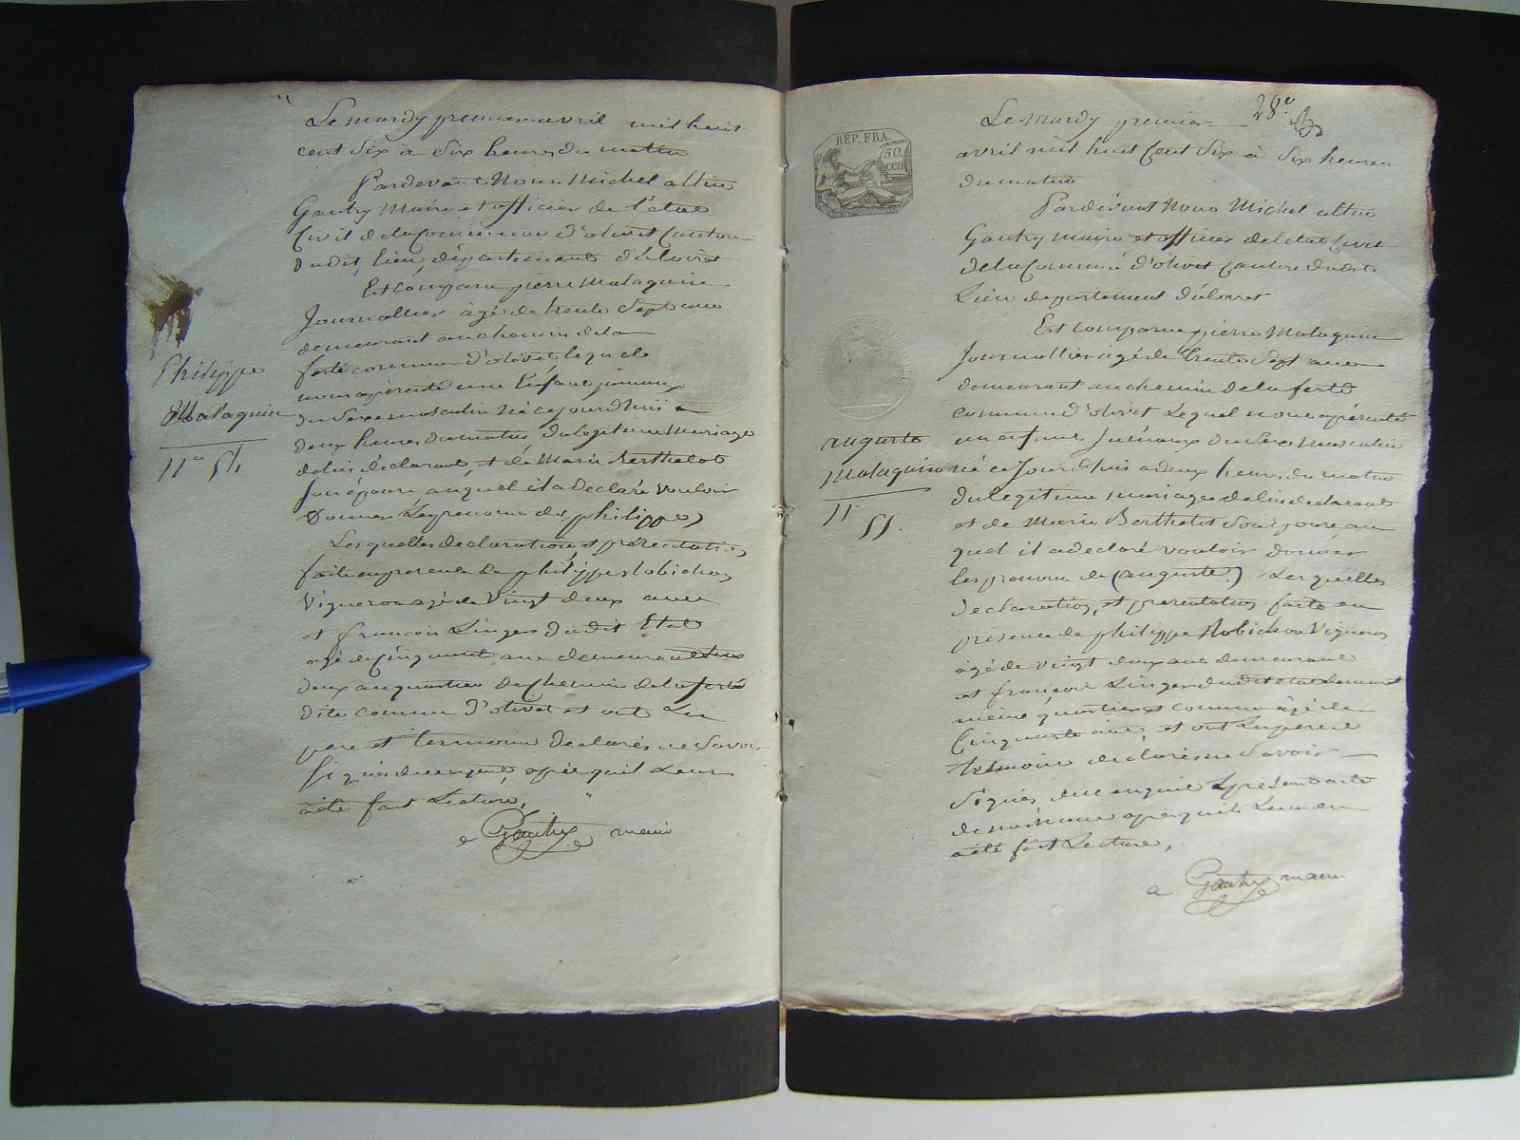 Le mardy premier avril mil huit
cent Six à Six heures du matin
Pardevant Nous Michel
Gautry Maire et officier de l'état
Civil de la Commune d'olivet Canton
dudit lieu, département du loiret
Est comparu pierre Malaquin
Journallier agé de trente Sept ans
demeurant au chemin de la
ferté commune d'olivet lequel
nous a présenté une Enfant jumeau
du Sexe masculin né ce jourdhuii a
deux heures du matin du legitime Mariage
de lui déclarant, et de Marie Berthelot
Son épouse auquel il a declaré vouloir
Donner Le prenom de philippe)
Les quelles declaration et présentation
faite en presence de philippe Robichon
Vigneron agé de Vingt deux ans
et francois Linger dudit Etat
agé de cinquante ans demeurant
deux au quartier du Chemin de la ferté
dite commune d'olivet et ont Les
pere et temoins declarés ne Savoir
Signer de ce enquis, après quil Leur
a été fait Lecture,
a Gautry maire
Philippe
Malaquin
Nº 51.
28e
Le mardy premier
avril mil huit Cent Six à Six heures
du matin
Pardevant Nous Michel
Gautry maire et officier de letat Civil
de la Commune d'olivet Canton dudit
Lieu departement du loiret
Est comparu pierre Malaquin
Journallier agé de trente Sept ans
demeurant au chemin de la ferté
commune d'olivet Lequel nous a présenté
un enfant Jumeaux du Sexe Masculin
né ce Jourdhuis a deux heures du matin
du legitime mariage de lui declarant
et de Marie Berthelot Son epouse au
quel il a declaré vouloir donner
les prenom de (auguste) Les quelles
declaration, et presentation faite en
présence de philippe Robichon Vigneron
agé de vingt deux ans demeurant
et françois Linger dudit etat demeurant
même quartier et commune agé de
Cinquante ans, et ont Les pere et
temoins declarés ne Savoir
Signer, de ce enquis Le présent acte
après quil Leur en
a été fait Lecture,
a Gautry maire
auguste
Malaquin
REP. FRA.
50
CEN